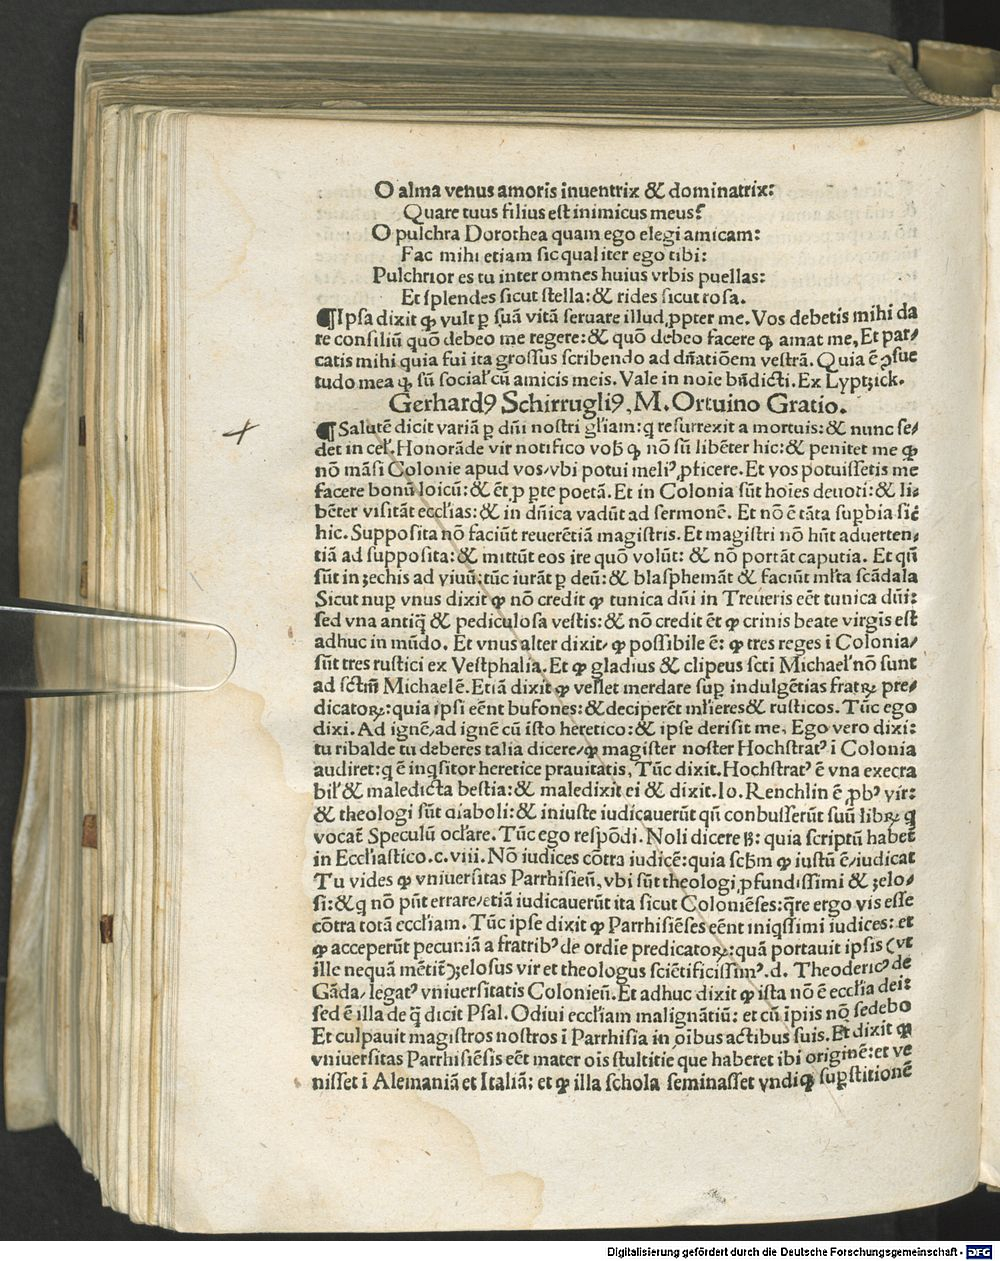 O alma venus amoris inuentrix & dominatrix:
Quare tuus filius est inimicus meus?
O pulchra Dorothea quam ego elegi amicam:
Fac mihi etiam sic qualiter ego tibi:
Pulchrior es tu inter omnes huius vrbis puellas:
Et splendes sicut stella: & rides sicut rosa.
¶Ipsa dixit ꝙ vult ꝑ suā vitā seruare illud ꝓpter me. Vos debetis mihi da
re consiliū quō debeo me regere: & quō debeo facere ꝙ amat me, Et par⸗
catis mihi quia fui ita grossus scribendo ad dn̄atiōem vestrā. Quia ē ꝯsue
tudo mea ꝙ sū social' cū amicis meis. Vale in noīe bn̄dicti. Ex Lyptzick.
Gerhardꝰ Schirrugliꝰ, M. Ortuino Gratio.
¶Salutē dicit variā ꝑ dn̄i nostri gl'iam: q resurrexit a mortuis: & nunc se⸗
det in cel'. Honorāde vir notifico vob̄ ꝙ nō sū libēter hic: & penitet me ꝙ
nō māsi Colonie apud vos/ vbi potui meliꝰ ꝓficere. Et vos potuissetis me
facere bonū loicū: & ēt ꝓ pte poetā. Et in Colonia sūt hoīes deuoti: & li⸗
bēter visitāt eccl'ias: & in dn̄ica vadūt ad sermonē. Et nō ē tāta supbia sic̄
hic. Supposita nō faciūt reuerētiā magistris. Et magistri nō hn̄t aduerten⸗
tiā ad supposita: & mittūt eos ire quō volūt: & nō portāt caputia. Et qn̄
sūt in zechis ad vinū: tūc iurāt ꝑ deū: & blasphemāt & faciūt ml'ta scādala
Sicut nuꝑ vnus dixit ꝙ nō credit ꝙ tunica dn̄i in Treueris eēt tunica dn̄i:
sed vna antiq̄ & pediculosa vestis: & nō credit ēt ꝙ crinis beate virgis est
adhuc in mūdo. Et vnus alter dixit/ ꝙ possibile ē: ꝙ tres reges i Colonia/
sūt tres rustici ex Vestphalia. Et ꝙ gladius & clipeus scti Michael' nō sunt
ad sctm̄ Michaelē. Etiā dixit ꝙ vellet merdare suꝑ indulgētias fratꝝ pre⸗
dicatoꝝ: quia ipsi eēnt bufones: & deciperēt ml'ieres & rusticos. Tūc ego
dixi. Ad ignē/ ad ignē cū isto heretico: & ipse derisit me. Ego vero dixi:
tu ribalde tu deberes talia dicere/ ꝙ magister noster Hochstratꝰ i Colonia
audiret: q ē inqsitor heretice prauitatis, Tūc dixit. Hochstratꝰ ē vna execra
bil' & maledicta bestia: & maledixit ei & dixit. Io. Renchlin ē ꝓbꝰ vir:
& theologi sūt diaboli: & iniuste iudicauerūt qn̄ conbusserūt suū librꝝ q
vocat̄ Speculū ocl'are. Tūc ego respōdi. Noli dicere ß: quia scriptū habet̄
in Eccl'iastico. c. viii. Nō iudices cōtra iudicē: quia scb̄m ꝙ iustū ē/ iudicat
Tu vides ꝙ vniuersitas Parrhisien̄, vbi sūt theologi ꝓfundissimi & zelo⸗
si: & q nō pn̄t errare/ etiā iudicauerūt ita sicut Coloniēses: q̄re ergo vis esse
cōtra totā eccl'iam. Tūc ipse dixit ꝙ Parrhisiēses eēnt iniqssimi iudices: et
ꝙ acceperūt pecuniā a fratribꝰ de ordīe predicatoꝝ: quā portauit ipsis (vt
ille nequā mētit̄) zelosus vir et theologus sciētificissimꝰ. d. Theodericꝰ de
Gāda/ legatꝰ vniuersitatis Colonien̄. Et adhuc dixit ꝙ ista nō ē eccl'ia dei:
sed ē illa de q̄ dicit Psal. Odiui eccl'iam malignātiū: et cū īpiis nō sedebo
Et culpauit magistros nostros i Parrhisia in oībus actibus suis. Et dixit ꝙ
vniuersitas Parrhisiēsis eēt mater oīs stultitie que haberet ibi originē: et ve
nisset i Alemaniā et Italiā: et ꝙ illa schola seminasset vndiꝙ suꝑstitionē
Digitalisierung gefördert durch die Deutsche Forschungsgemeinschaft - DFG